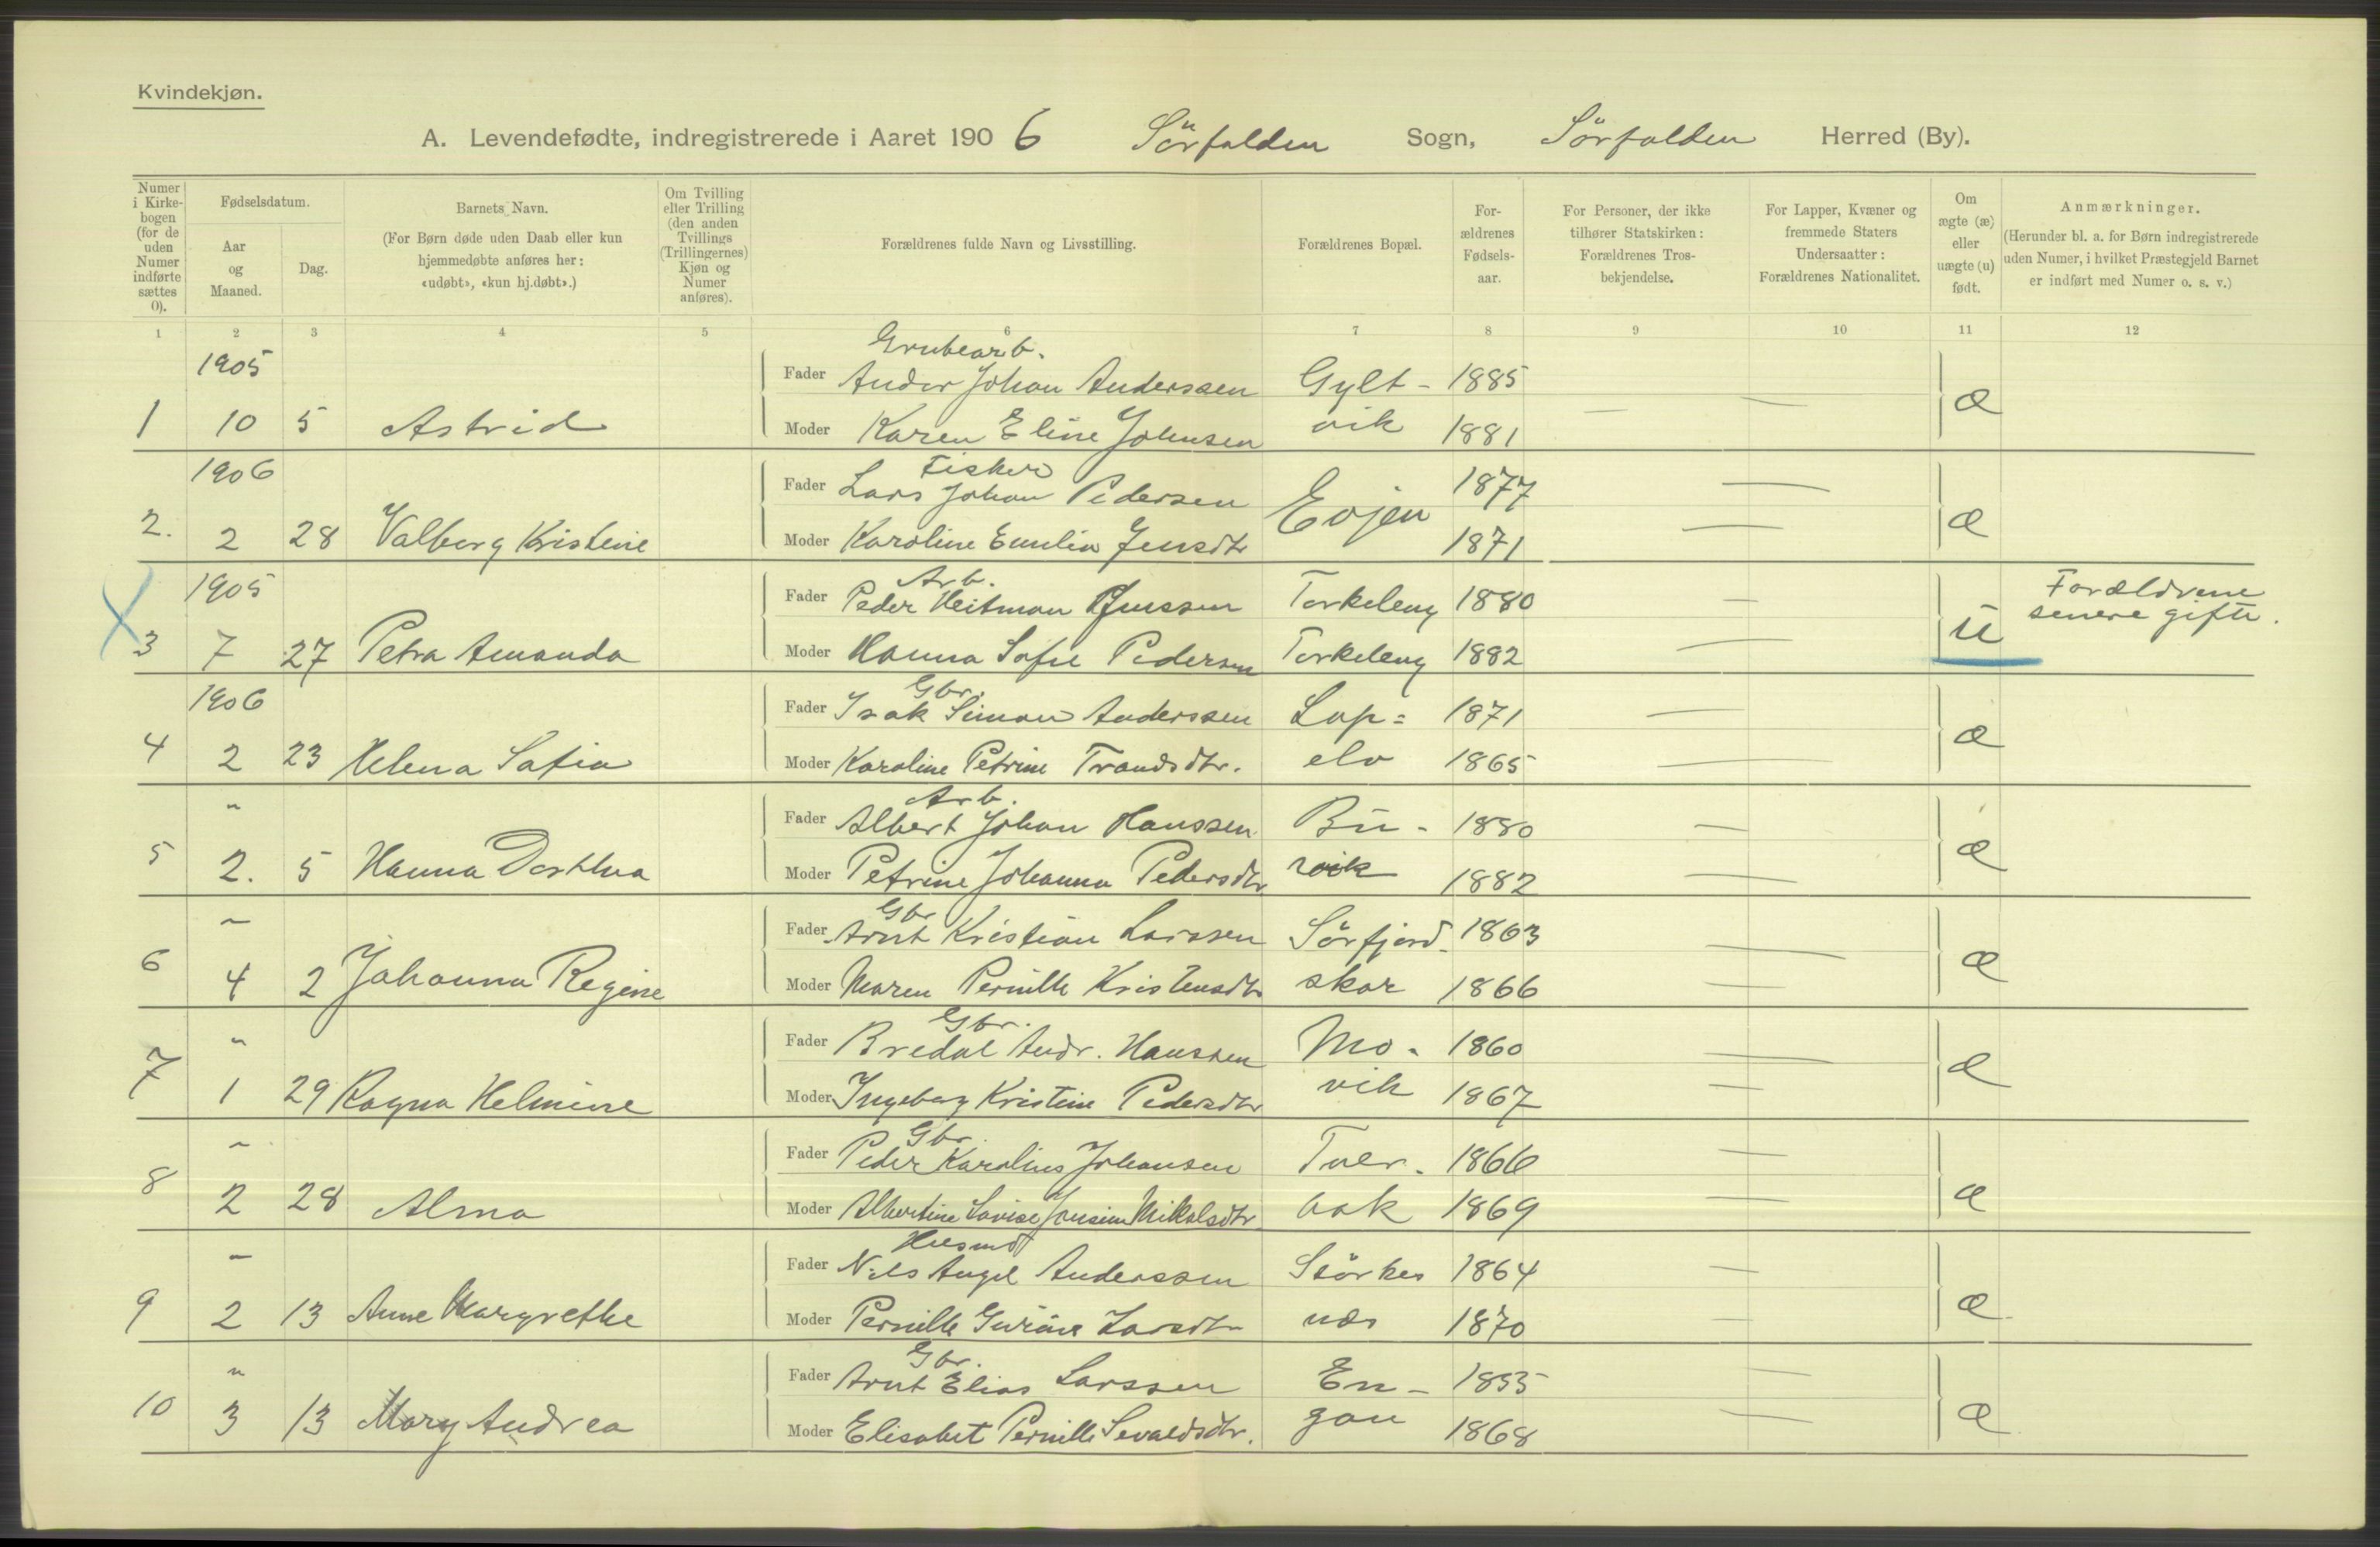 Kvindekjøn.
A. Levendefødte, indregistrerede i Aaret 1906 Sörfolden Sogn, Sörfolden Herred (By).
Numer i Kirkebogen (for de uden Numer indførte sættes 0).
Fødselsdatum.
Aar og Maaned.
Dag.
Barnets Navn.
(For Børn døde uden Daab eller kun hjemmedøbte anføres her: «udøbt», «kun hj.døbt».)
Om Tvilling eller Trilling (den anden Tvillings (Trillingernes) Kjøn og Numer anføres).
Forældrenes fulde Navn og Livsstilling.
Forældrenes Bopæl.
For-ældrenes Fødsels-aar.
For Personer, der ikke tilhører Statskirken: Forældrenes Tros-bekjendelse.
For Lapper, Kvæner og fremmede Staters Undersaatter: Forældrenes Nationalitet.
Om ægte (æ) eller uægte (u) født.
Anmærkninger.
(Herunder bl. a. for Børn indregistrerede uden Numer, i hvilket Præstegjeld Barnet er indført med Numer o. s. v.)
1 2 3 4 5 6 7 8 9 10 11 12
Grubearb.
1905 Fader Ander Johan Anderssen Gylt- 1885
1 10 5 Astrid Moder Karen Eline Johnsen vik 1881 — — æ
Fisker
1906 Fader Lars Johan Pedersen Evjen 1877 —
2. 2 28 Valborg Kristine Moder Karoline Emilie Jensdtr 1871 — æ
Arb.
1905 Fader Peder Heitman Jenssen Torkeleng 1880 — Forældrene
senere gifte.
3 7 27 Petra Amanda Moder Hanna Sofie Pedersen Torkeleng 1882 — u
Gbr.
1906 Fader Isak Simon Anderssen Lap= 1871 —
4 2 23 Helena Sofia Moder Karoline Petrine Trondsdtr. elv 1865 — æ
Arb.
" Fader Albert Johan Hanssen Bu- 1880 —
5 2. 5 Hanna Dorthea Moder Petrine Johanna Pedersdtr vik 1882 — æ
Gbr
" Fader Arnt Kristian Larssen Sörfjord- 1863 —
6 4 2 Johanna Regine Moder Maren Pernille Kristensdtr skar 1866 — æ
Gbr.
" Fader Bredal Andr. Hanssen Mo- 1860 —
7 1 29 Ragna Helmine Moder Ingeborg Kristine Pedersdtr vik 1867 — æ
Gbr.
" Fader Peder Karolius Johansen Tver- 1866 —
8 2 28 Alma Moder Albertine Lovise Jonsine Nikolsdtr aak 1869 — æ
Husmd
" Fader Nils Angel Anderssen Störkes 1864 —
9 2 13 Anne Margrethe Moder Pernille Gurine Larsdtr næs 1870 — æ
Gbr.
" Fader Arnt Elias Larssen En- 1855 —
10 3 13 Mary Andrea Moder Elisabet Pernille Sevaldsdtr. gan 1868 — æ